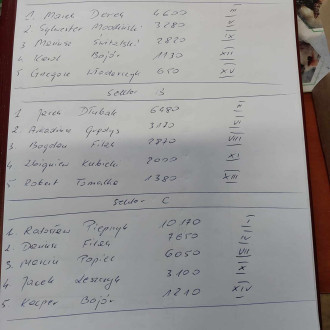 1. Marek Doroś 4600 III
2 Sylwester 3280 V
3 Mariusz Świtalski 2820 IX
4 Karol Bajór 1130 XII
5 Grzegorz Włodarczyk 650 XV
Sektor B
1 Jacek Dłubak 6480 II
2 Arkadiusz 3170 VI
3 Bogdan Filek 2870 VIII
4 Zbigniew Kubicki 2000 XI
5 Robert Tomalka 1380 XIII
Sektor C
1 Radosław Pieprzyk 10170 I
2 Dariusz Filek 7650 IV
3 Marcin Papież 6050 VII
4 Jacek 3100 X
5 Kacper Bajór 1210 XIV